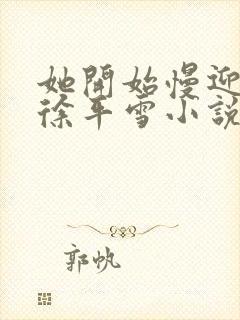 她開始慢迎
徐平雪小說
郭帆